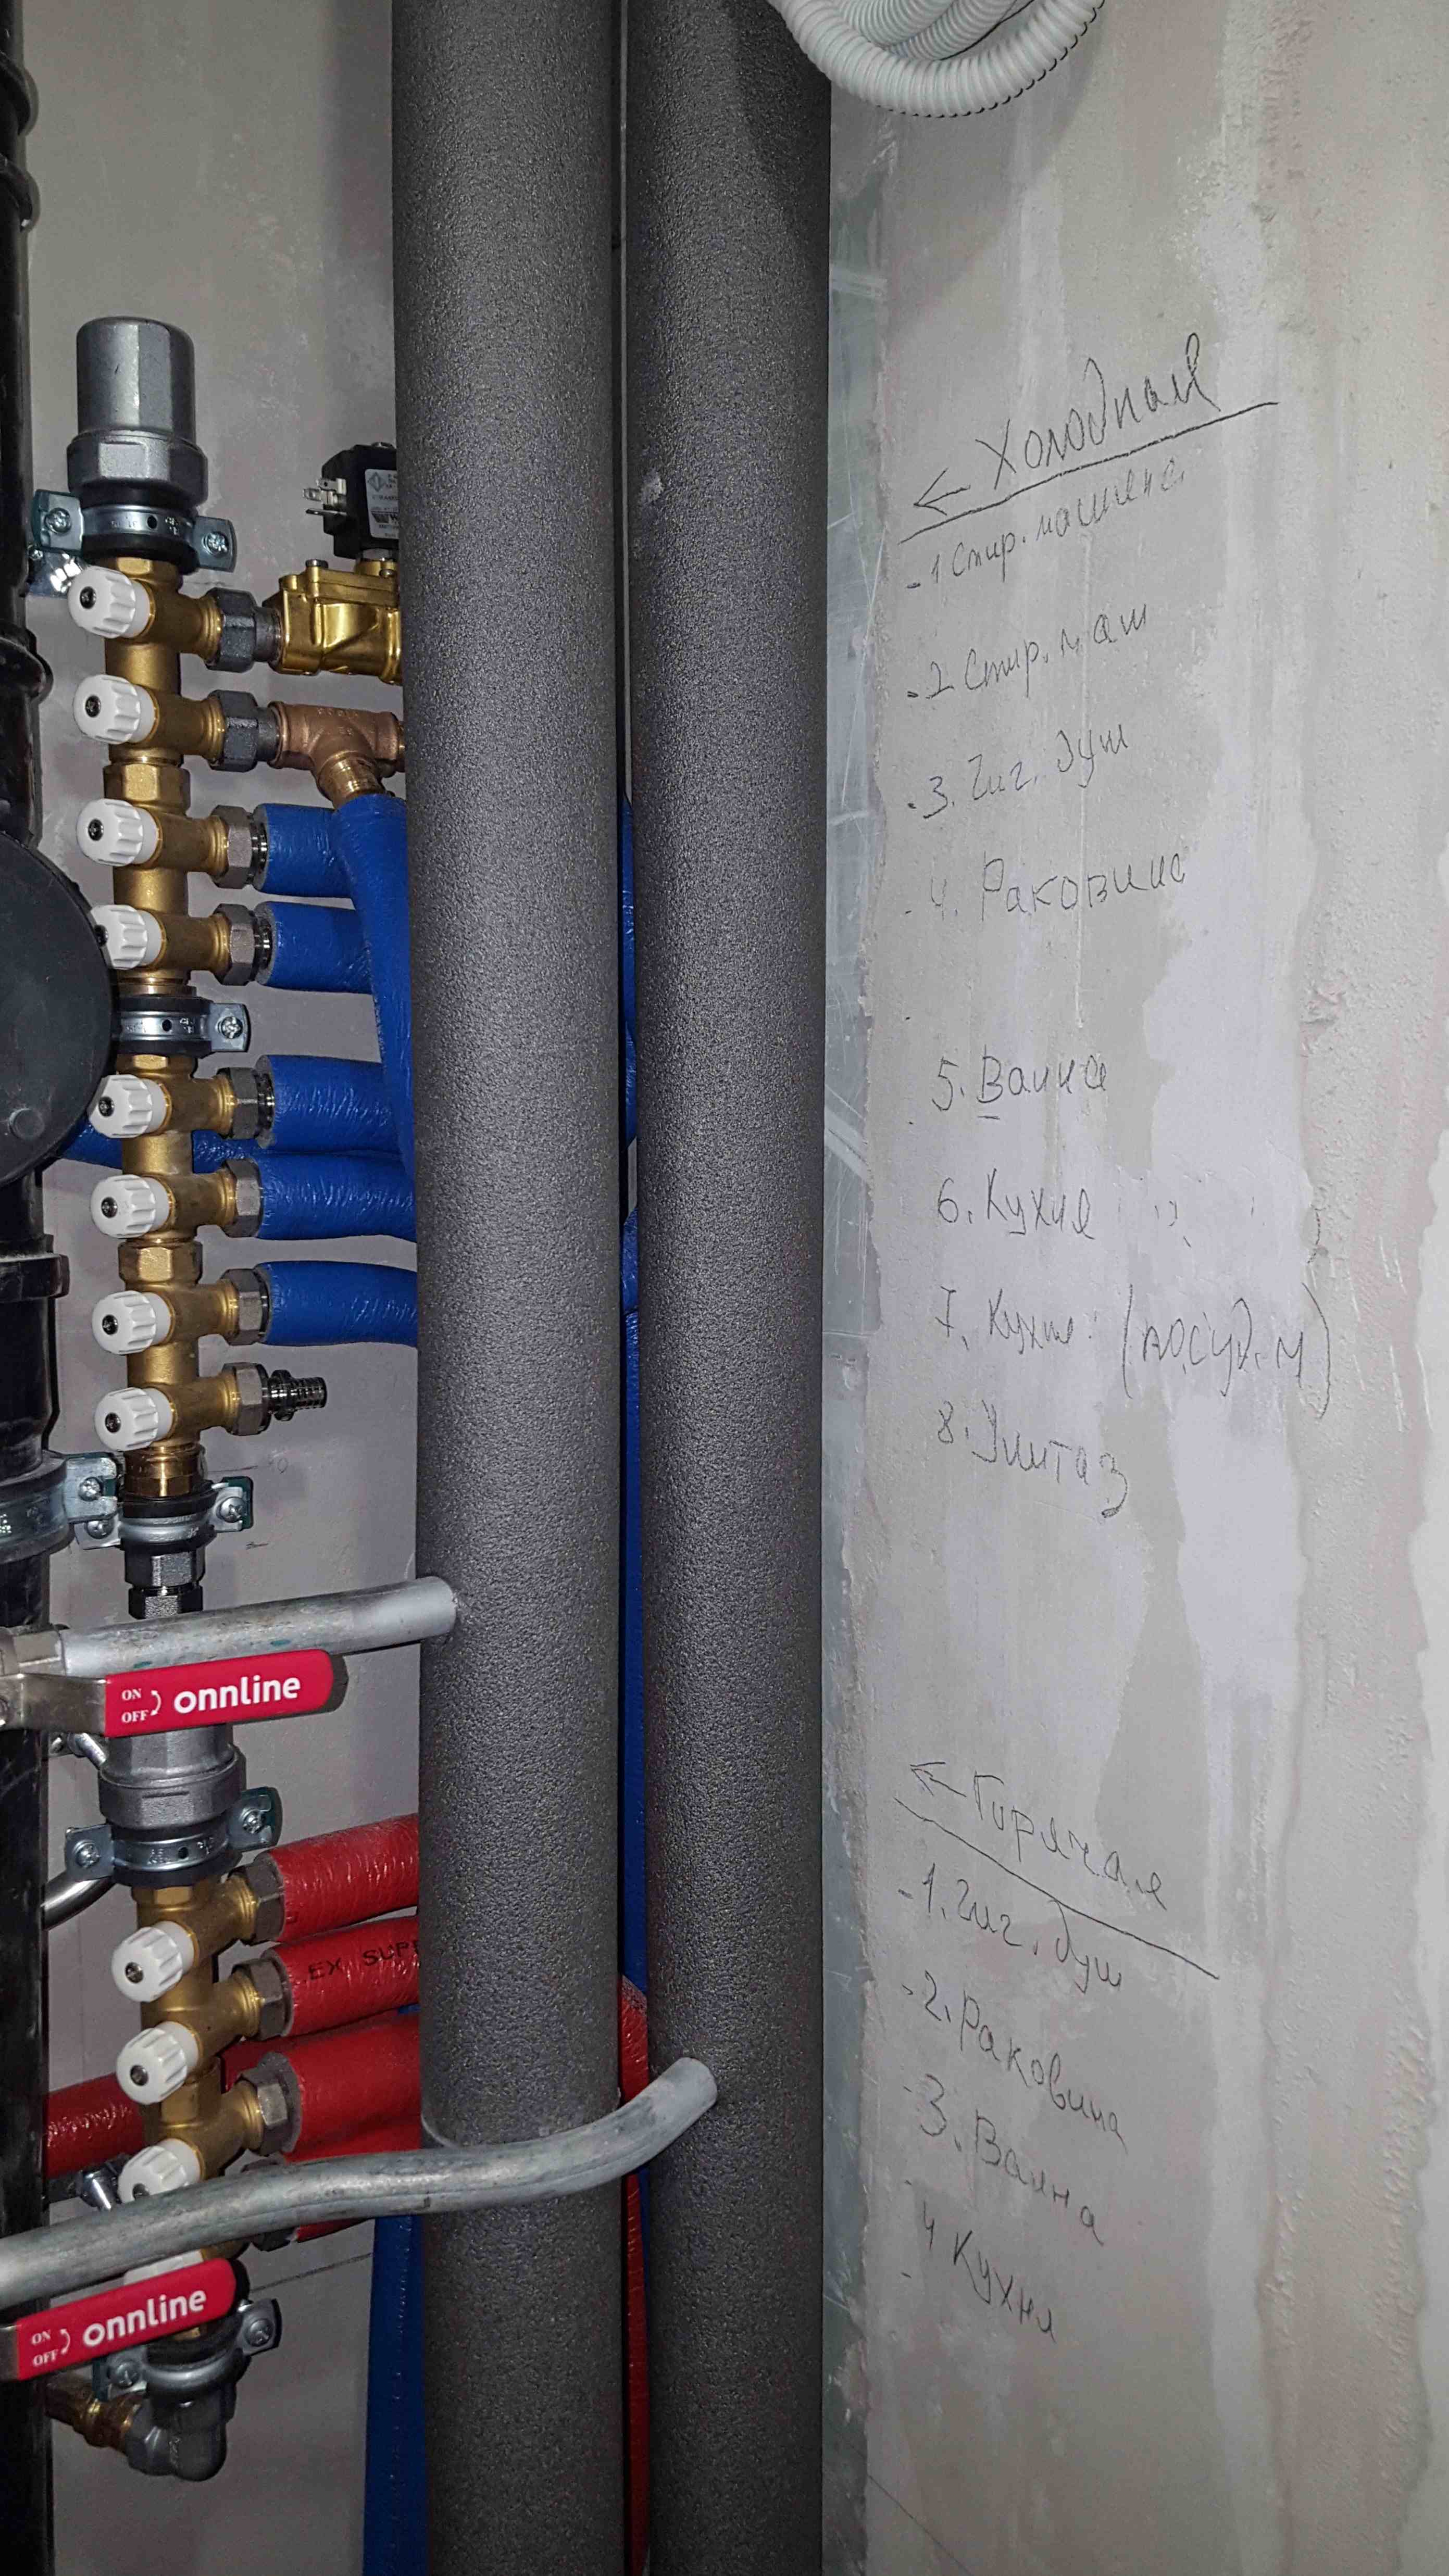 ← Холодная
- 1 Стир. машина
- 2 Стир. маш
- 3. Гиг. душ
- 4. Раковина
5. Ванна
6. Кухня
7. Кухня (посуд. м)
8. Унитаз
ON
OFF
onnline
← Горячая
- 1. Гиг. душ
- 2. Раковина
3. Ванна
4 Кухня
EX SUPE
ON
OFF
onnline